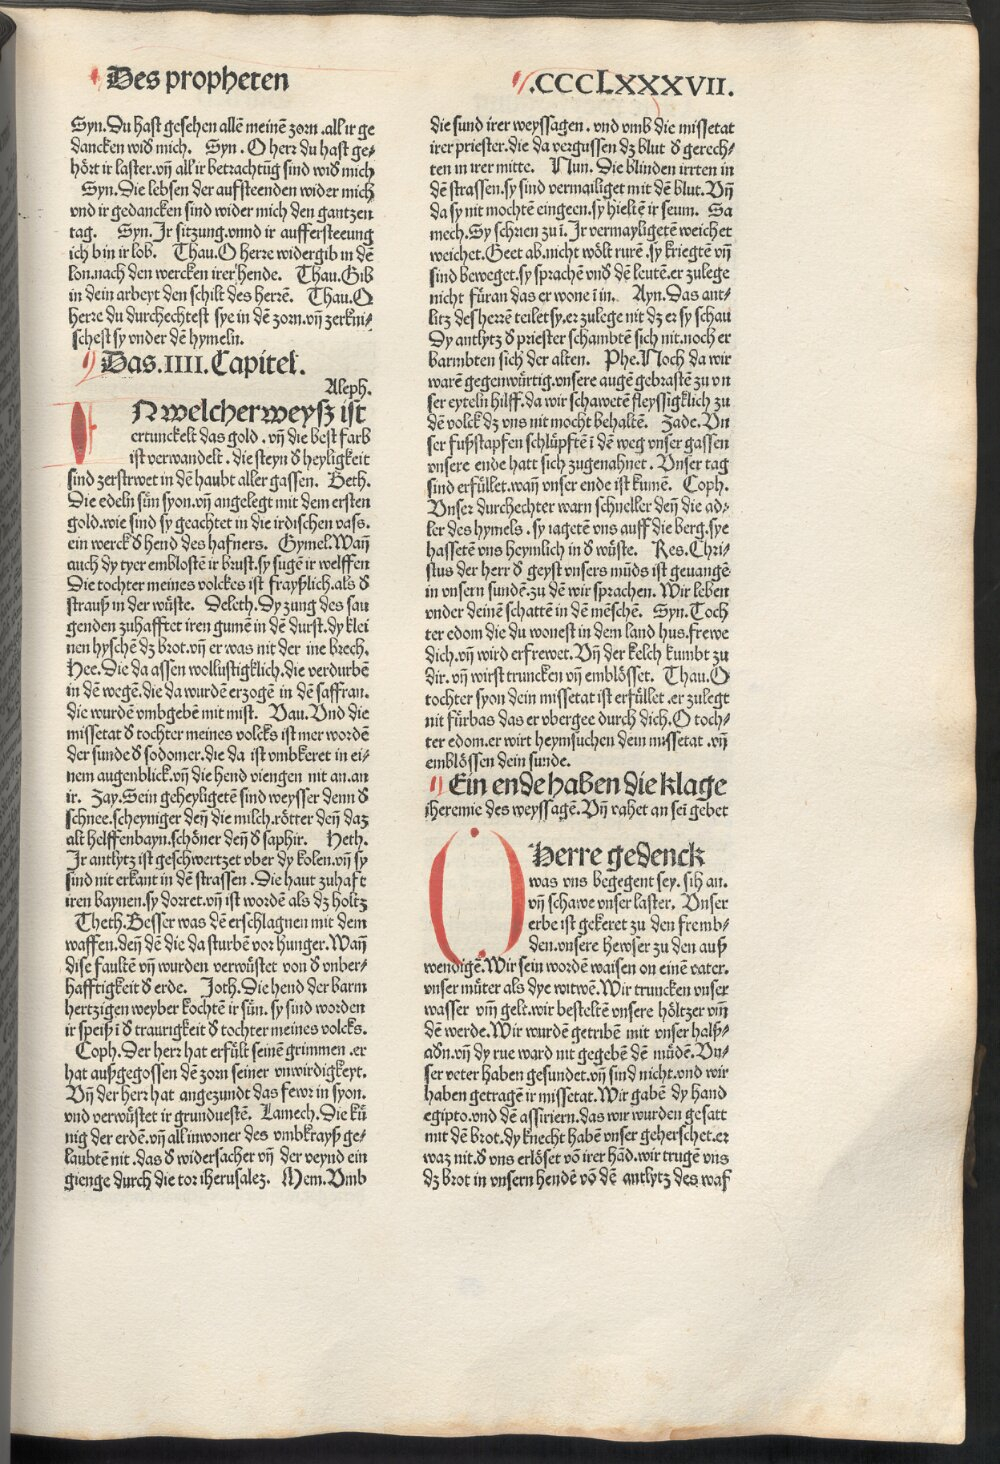 Des propheten
.CCCLXXXVII.
Syn.Du hast gesehen allẽ meinẽ zorn .all ir ge
dancken wid͛ mich. Syn . O herz du hast ge⸗
hört ir laster.vñ all ir betrachtũg sind wid͛ mich
Syn.Die lebsen der aufsteenden wider mich
vnd ir gedancken sind wider mich den gantzen
tag. Syn. Jr sitzung.vnnd ir auffersteeung
ich bin ir lob. Thau.O herre widergib in dẽ
lon.nach den wercken irer hende. Thau.Gib
in dein arbeyt den schilt des herrẽ. Thau.O
herre du durchechtest sye in dẽ zorn.vñ zerkni⸗
schest sy vnder dẽ hymeln.
Das.IIII.Capitel.
Aleph.
N welcher weysz ist
ertunckelt das gold . vñ die best farb
ist verwandelt . die steyn d͛ heyligkeit
sind zerstrwet in dẽ haubt aller gassen. Beth.
Die edeln sün syon.vñ angelegt mit dem ersten
gold.wie sind sy geachtet in die irdischen vass.
ein werck d͛ hend des hafners. Gymel.Wañ
auch dy tyer emblöstẽ ir brust.sy sugẽ ir welffen
Die tochter meines volckes ist frayßlich.als d͛
strauß in der wüste. Deleth. Dy zung des sau
genden zuhafftet iren gumẽ in dẽ durst.dy klei
nen hyschẽ dz brot.vñ er was nit der ine brech.
Hee.Die da assen wollustigklich.die verdurbẽ
in dẽ wegẽ.die da wurdẽ erzogẽ in dẽ saffran.
die wurdẽ vmbgebẽ mit mist. Vau.Vnd die
missetat d͛ tochter meines volcks ist mer wordẽ
der sunde d͛ sodomer.die da ist vmbkeret in ei⸗
nem augenblick.vñ die hend viengen nit an.an
ir. Zay.Sein geheyligetẽ sind weysser denn d͛
schnee.scheyniger deñ die milch.rötter deñ daz
alt helffenbayn.schöner deñ d͛ saphir. Heth.
Jr antlytz ist geschwertzet vber dy kolen.vñ sy
sind nit erkant in dẽ strassen . Die haut zuhaft
iren baynen.sy dorret.vñ ist wordẽ als dz holtz
Theth.Besser was dẽ erschlagnen mit dem
waffen.deñ dẽ die da sturbẽ vor hunger.Wañ
dise faultẽ vñ wurden verwüstet von d͛ vnber⸗
hafftigkeit d͛ erde. Joth.Die hend der barm
hertzigen weyber kochtẽ ir sün. sy sind worden
ir speiß ĩ d͛ traurigkeit d͛ tochter meines volcks.
Coph.Der herr hat erfült seinẽ grimmen .er
hat außgegossen dẽ zorn seiner vnwirdigkeyt.
Vñ der herr hat angezundt das fewr in syon.
vnd verwüstet ir grunduestẽ. Lamech.Die kü
nig der erdẽ.vñ all inwoner des vmbkrayß ge⸗
laubtẽ nit .das d͛ widersacher vñ der veynd ein
gienge durch die tor iherusalez. Mem.Vmb
die sund irer weyssagen . vnd vmb die missetat
irer priester.die da vergussen dz blut d͛ gerech⸗
ten in irer mitte. Nun. Die blinden irrten in
dẽ strassen.sy sind vermailiget mit dẽ blut.Vñ
da sy nit mochtẽ eingeen.sy hieltẽ ir seum. Sa
mech.Sy schrien zu ĩ. Jr vermayligetẽ weichet
weichet.Geet ab.nicht wölt rurẽ .sy kriegtẽ vñ
sind beweget.sy sprachẽ vnd͛ dẽ leutẽ.er zulege
nicht füran das er wone ĩ in. Ayn.Das ant⸗
litz des herrẽ teilet sy.er zulege nit dz er sy schau
Dy antlytz d͛ priester schambtẽ sich nit.noch er
barmbten sich der alten. Phe.Noch da wir
warẽ gegenwürtig.vnsere augẽ gebrastẽ zu vn
ser eyteln hilff.da wir schawetẽ fleyssigklich zu
dẽ volck dz vns nit mocht behaltẽ. Zade.Vn
ser fußstapfen schlüpftẽ ĩ dẽ weg vnser gassen
vnsere ende hatt sich zugenahnet . Vnser tag
sind erfüllet.wañ vnser ende ist kumẽ. Coph.
Vnser durchechter warn schneller deñ die ad⸗
ler des hymels . sy iagetẽ vns auff die berg.sye
hassetẽ vns heymlich in d͛ wüste. Res.Chri⸗
stus der herr d͛ geyst vnsers mũds ist geuangẽ
in vnsern sundẽ.zu dẽ wir sprachen.Wir leben
vnder deinẽ schattẽ in dẽ mẽschẽ. Syn.Toch
ter edom die du wonest in dem land hus.frewe
dich.vñ wird erfrewet.Vñ der kelch kumbt zu
dir. vñ wirst truncken vñ emblösset. Thau.O
tochter syon dein missetat ist erfüllet .er zulegt
nit fürbas das er vbergee durch dich.O toch⸗
ter edom.er wirt heymsuchen dein missetat .vñ
emblössen dein sunde.
Ein ende haben die klage
iheremie des weyssagẽ.Vñ vahet an sei gebet
O Herre gedenck
was vns begegent sey. sih an.
vñ schawe vnser laster. Vnser
erbe ist gekeret zu den fremb⸗
den.vnsere hewser zu den auß
wendigẽ.Wir sein wordẽ waisen on einẽ vater.
vnser müter als dye witwẽ.Wir truncken vnser
wasser vm̃ gelt.wir besteltẽ vnsere höltzer vm̃
dẽ werde.Wir wurdẽ getribẽ mit vnser halß⸗
adn.vñ dy rue ward nit gegebẽ dẽ müdẽ.Vn⸗
ser veter haben gesundet.vñ sind nicht.vnd wir
haben getragẽ ir missetat.Wir gabẽ dy hand
egipto.vnd dẽ assiriern.das wir wurden gesatt
mit dẽ brot.dy knecht habẽ vnser geherschet.er
waz nit.d͛ vns erlöset võ irer hãd.wir trugẽ vns
dz brot in vnsern hendẽ võ dẽ antlytz des waf